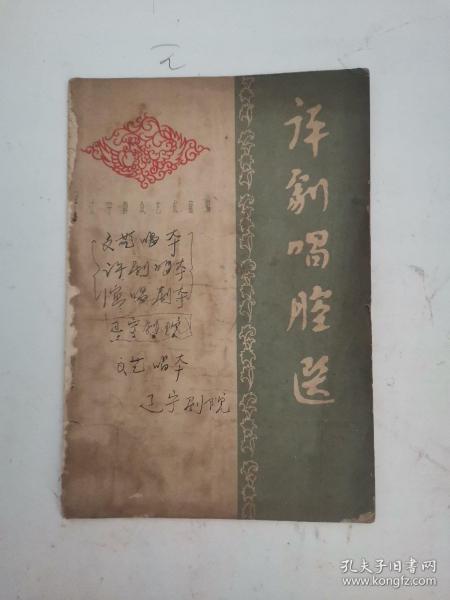 评劇唱腔选
辽宁群众艺术館編
文艺唱本
评剧唱本
演唱剧本
辽宁剧院
文艺唱本
辽宁剧院
孔夫子旧书网
www.kongfz.com